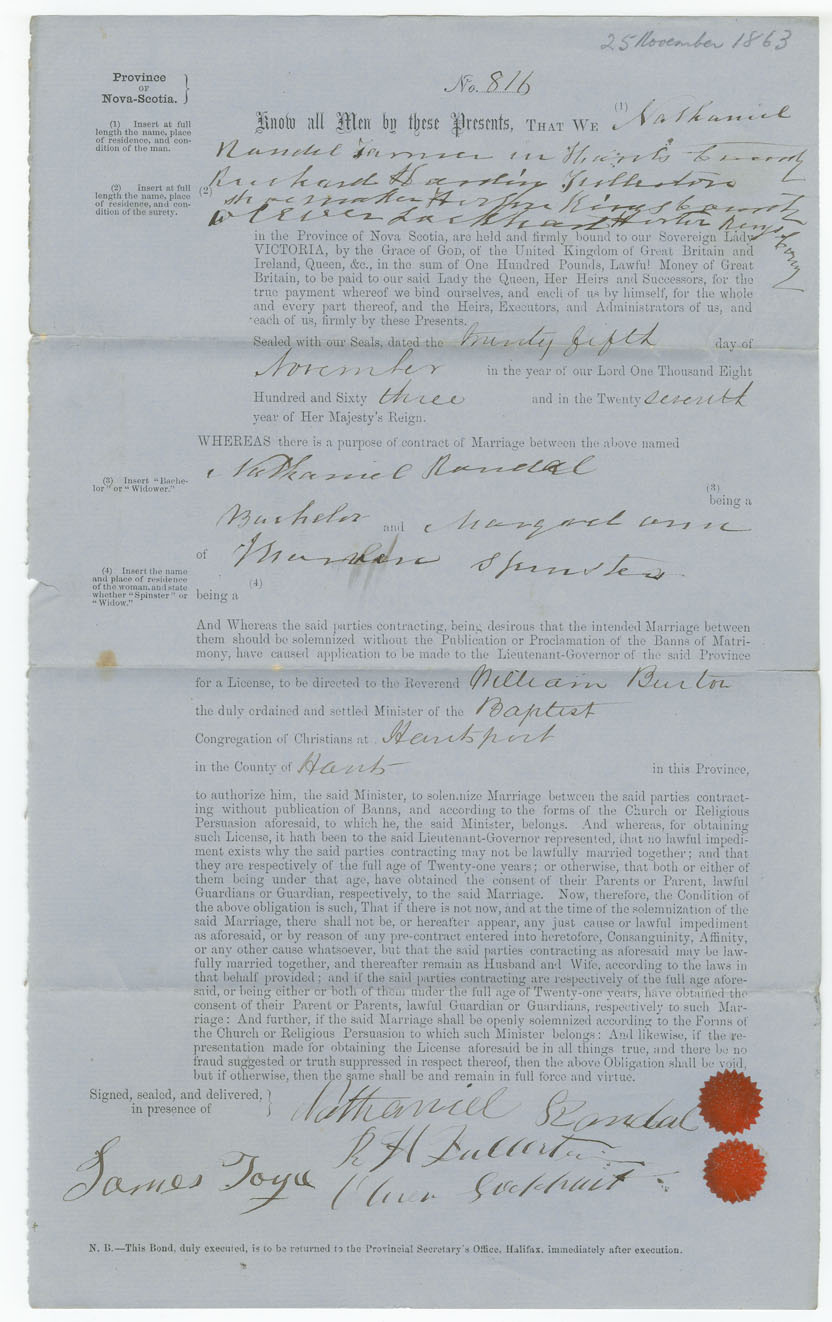 25 November 1863
Province
OF
Nova-Scotia. }
No. 816
(1) Insert at full
length the name, place
of residence, and con-
dition of the man.
Know all Men by these Presents, THAT WE (1) Nathaniel
Randel Farmer in Hants County
(2) Insert at full
length the name, place
of residence, and con-
dition of the surety.
(2) Harding Fullerton
shoemaker Horton Kings County
Lockhart Horton Kings County
in the Province of Nova Scotia, are held and firmly bound to our Sovereign Lady
VICTORIA, by the Grace of GOD, of the United Kingdom of Great Britain and
Ireland, Queen, &c., in the sum of One Hundred Pounds, Lawful Money of Great
Britain, to be paid to our said Lady the Queen, Her Heirs and Successors, for the
true payment whereof we bind ourselves, and each of us by himself, for the whole
and every part thereof, and the Heirs, Executors, and Administrators of us, and
each of us, firmly by these Presents.
Sealed with our Seals, dated the twenty fifth day of
November in the year of our Lord One Thousand Eight
Hundred and Sixty three and in the Twenty seventh
year of Her Majesty's Reign.
WHEREAS there is a purpose of contract of Marriage between the above named
Nathaniel Randal
(3) Insert "Bache-
lor" or "Widower."
(3)
being a
Bachelor and Margaret ann
of Spinster
(4) Insert the name
and place of residence
of the woman, and state
whether "Spinster" or
"Widow."
(4)
being a
And Whereas the said parties contracting, being desirous that the intended Marriage between
them should be solemnized without the Publication or Proclamation of the Banns of Matri-
mony, have caused application to be made to the Lieutenant-Governor of the said Province
for a License, to be directed to the Reverend William Burton
the duly ordained and settled Minister of the Baptist
Congregation of Christians at Hantsport
in the County of Hants in this Province,
to authorize him, the said Minister, to solemnize Marriage between the said parties contract-
ing without publication of Banns, and according to the forms of the Church or Religious
Persuasion aforesaid, to which he, the said Minister, belongs. And whereas, for obtaining
such License, it hath been to the said Lieutenant-Governor represented, that no lawful impedi-
ment exists why the said parties contracting may not be lawfully married together; and that
they are respectively of the full age of Twenty-one years; or otherwise, that both or either of
them being under that age, have obtained the consent of their Parents or Parent, lawful
Guardians or Guardian, respectively, to the said Marriage. Now, therefore, the Condition of
the above obligation is such, That if there is not now, and at the time of the solemnization of the
said Marriage, there shall not be, or hereafter appear, any just cause or lawful impediment
as aforesaid, or by reason of any pre-contract entered into heretofore, Consanguinity, Affinity,
or any other cause whatsoever, but that the said parties contracting as aforesaid may be law-
fully married together, and thereafter remain as Husband and Wife, according to the laws in
that behalf provided; and if the said parties contracting are respectively of the full age afore-
said, or being either or both of them under the full age of Twenty-one years, have obtained the
consent of their Parent or Parents, lawful Guardian or Guardians, respectively to such Mar-
riage: And further, if the said Marriage shall be openly solemnized according to the Forms of
the Church or Religious Persuasion to which such Minister belongs: And likewise, if the re-
presentation made for obtaining the License aforesaid be in all things true, and there be no
fraud suggested or truth suppressed in respect thereof, then the above Obligation shall be void,
but if otherwise, then the same shall be and remain in full force and virtue.
Signed, sealed, and delivered, }
in presence of
Nathaniel Randal
R H Fullerton
James Toye
Oliver Lockhart
N. B.—This Bond, duly executed, is to be returned to the Provincial Secretary's Office, Halifax, immediately after execution.